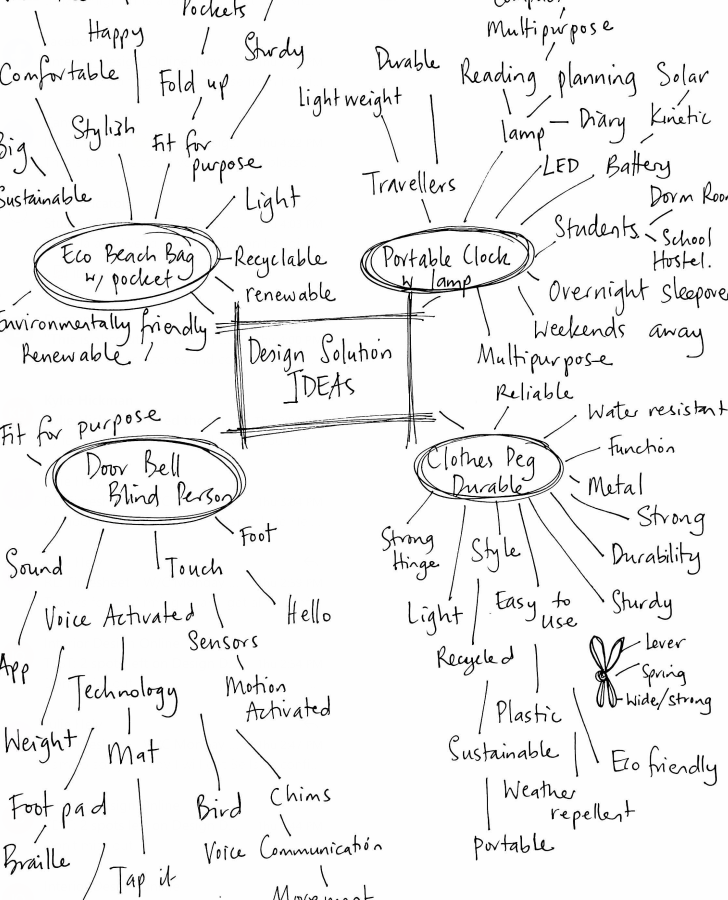 Pockets
Happy
Sturdy
Comfortable
Fold up
Stylish
Fit for
purpose
Big
Sustainable
Light
Eco Beach Bag
w/ pocket
Recyclable
renewable
Environmentally friendly
Renewable
Multipurpose
Durable
Reading
planning
Solar
Lightweight
lamp
Diary
Kinetic
LED
Battery
Travellers
Dorm Room
Students
School
Hostel.
Portable Clock
w lamp
Overnight sleepover
Weekends away
Multipurpose
Design Solution
IDEAs
Fit for purpose
Door Bell
Blind Person
Foot
Sound
Touch
Hello
Voice Activated
Sensors
App
Technology
Motion
Activated
Weight
Mat
Foot pad
Bird
Chims
Braille
Voice Communication
Tap it
Movement
Reliable
Water resistant
Clothes Peg
Durable
Function
Metal
Strong
Strong
Hinge
Style
Durability
Light
Easy to
use
Sturdy
Recycled
Lever
Spring
Wide/strong
Plastic
Sustainable
Eco friendly
Weather
repellent
Portable